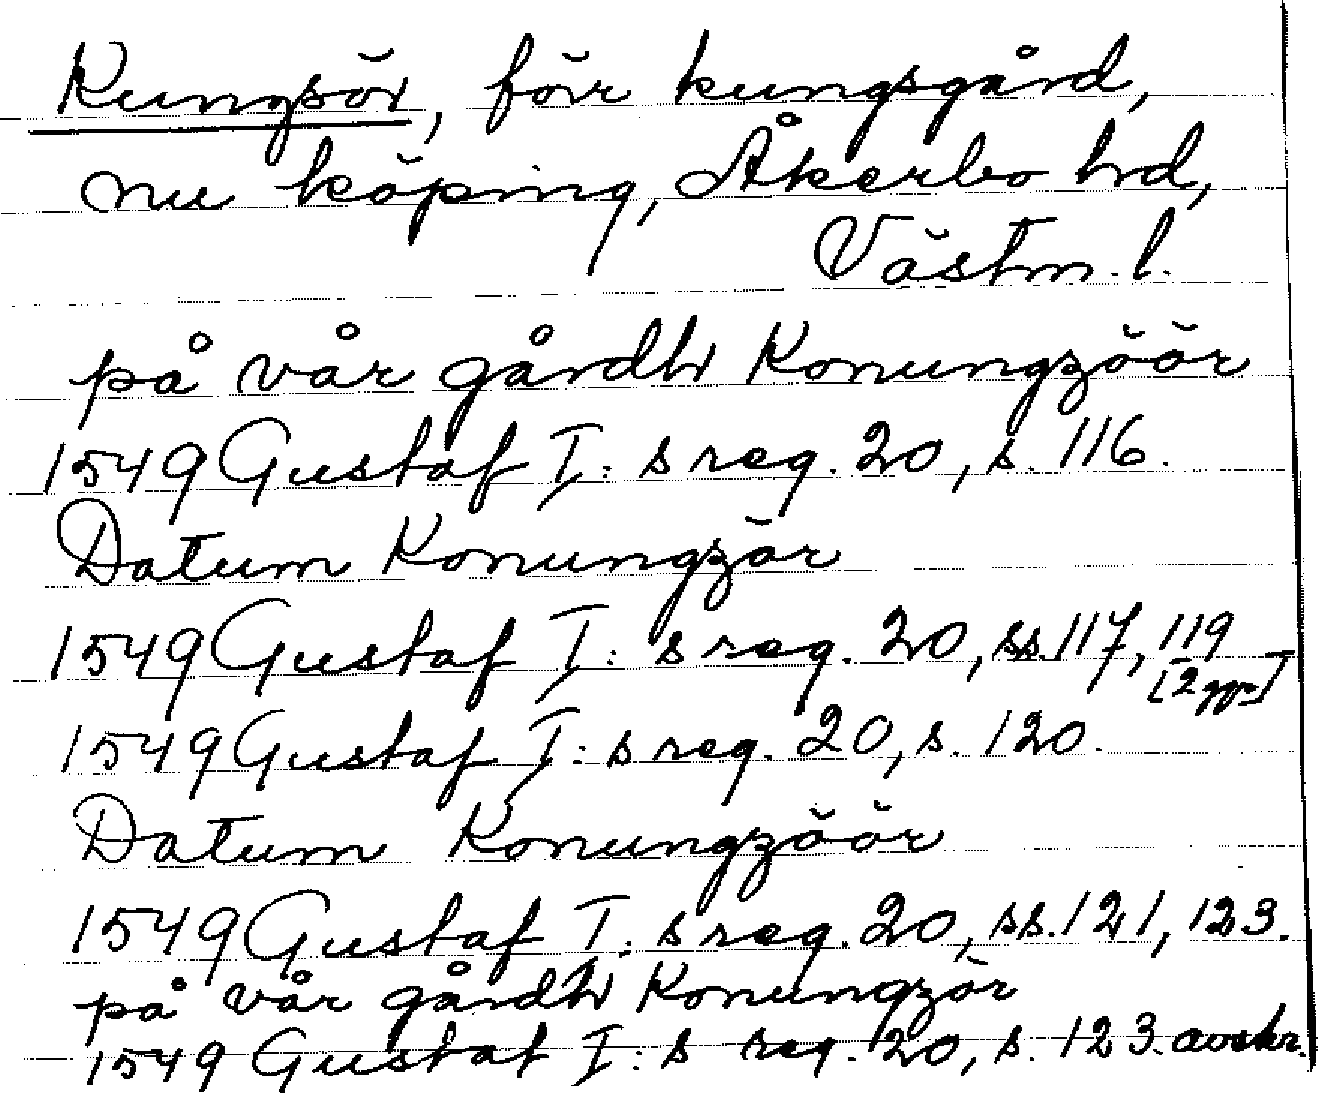 Kungsör, förr kungsgård,
nu köping, Åkerbo hd,
Västm. l.
på vår gårdh Konungzöör
1549 Gustaf I: s reg. 20, s. 116.
Datum Konungzör
1549 Gustaf I: s reg. 20, ss. 117, 119
[2 ggr]
1549 Gustaf I: s reg. 20, s. 120.
Datum Konungzöör
1549 Gustaf I: s reg. 20, ss. 121, 123.
på vår gårdh Konungzör
1549 Gustaf I: s reg. 20, s. 123. avskr.